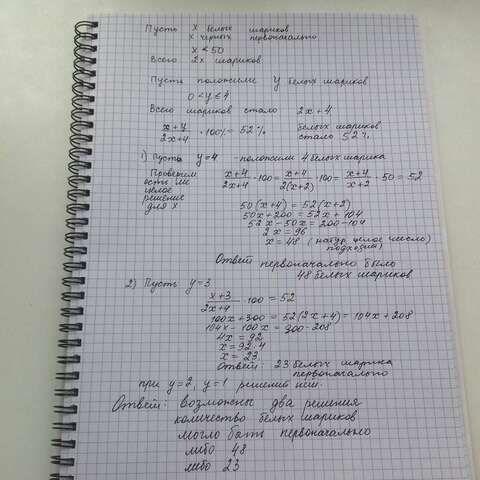 Пусть х белых шариков
х черных первоначально
х < 50
Всего 2х шариков
Пусть положили y белых шариков
0 < y ≤ 4
Всего шариков стало 2х+4
(x+y)/(2x+4) · 100% = 52% белых шариков стало 52%
1) Пусть y=4 - положили 4 белых шарика
Проверим есть ли целое решение для х
(x+4)/(2x+4) · 100 = (x+4)/(2(x+2)) · 100 = (x+4)/(x+2) · 50 = 52
50(x+4) = 52(x+2)
50x+200 = 52x+104
52x-50x = 200-104
2x = 96
x = 48 (натур. целое число) подходит
Ответ первоначально было
48 белых шариков
2) Пусть y=3
(x+3)/(2x+4) · 100 = 52
100x+300 = 52(2x+4) = 104x+208
104x-100x = 300-208
4x = 92
x = 92:4
x = 23
Ответ 23 белых шарика
первоначально
при y=2, y=1 решений нет.
Ответ: возможны два решения
количество белых шариков
могло быть первоначально
либо 48
либо 23